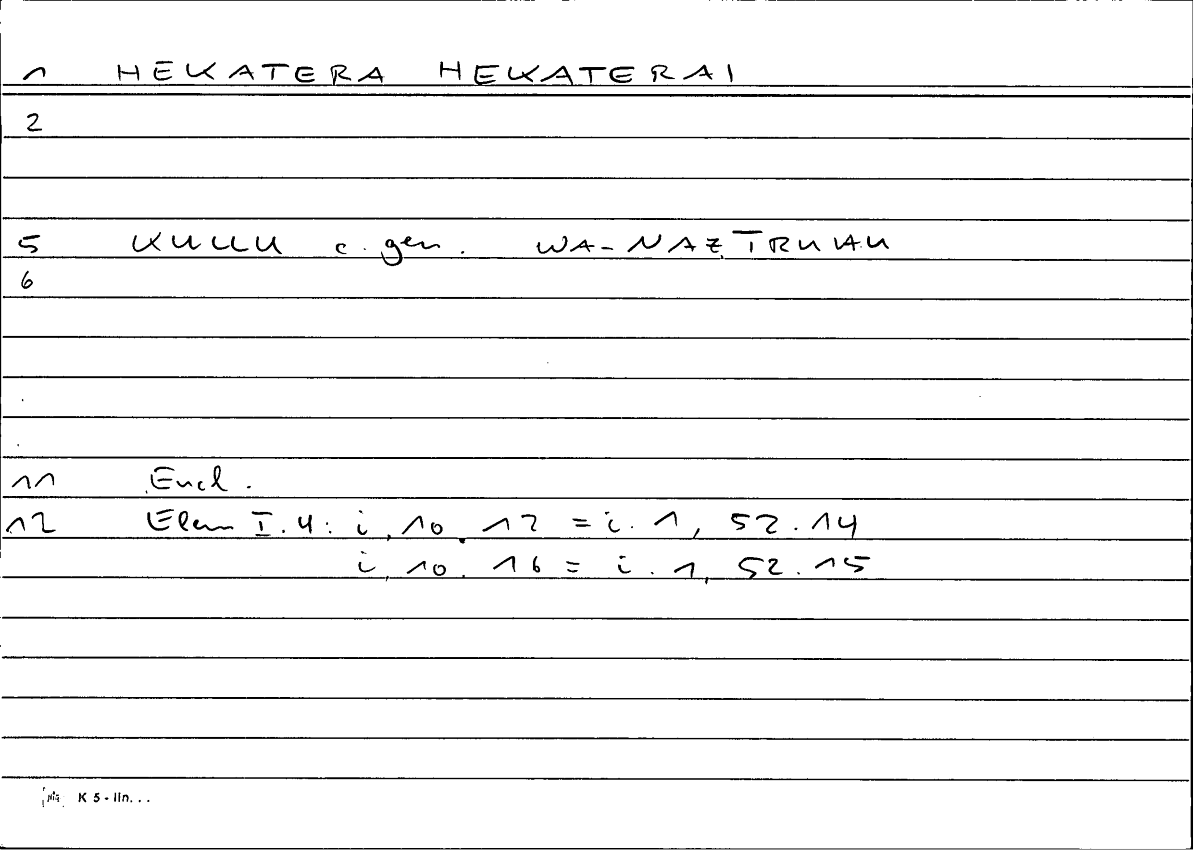 1 HEKATERA HEKATERAI
2
5 KULLU c. gen. WA-NAZTRUIAU
6
11 Eucl.
12 Elem I.4: i, 10. 12 = i. 1, 52.14
i, 10. 16 = i. 1, 52.15
K 5 - lin...